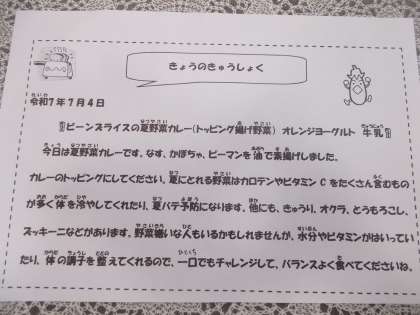 きょうのきゅうしょく
令和7年7月4日
ビーンズライスの夏野菜カレー(トッピング揚げ野菜) オレンジヨーグルト 牛乳
今日は夏野菜カレーです。なす、かぼちゃ、ピーマンを油で素揚げしました。
カレーのトッピングにしてください。夏にとれる野菜はカロテンやビタミンCをたくさん含むもの
が多く体を冷やしてくれたり、夏バテ予防になります。他にも、きゅうり、オクラ、とうもろこし、
ズッキーニなどがあります。野菜嫌いな人もいるかもしれませんが、水分やビタミンがはいってい
たり、体の調子を整えてくれるので、一口でもチャレンジして、バランスよく食べてくださいね。